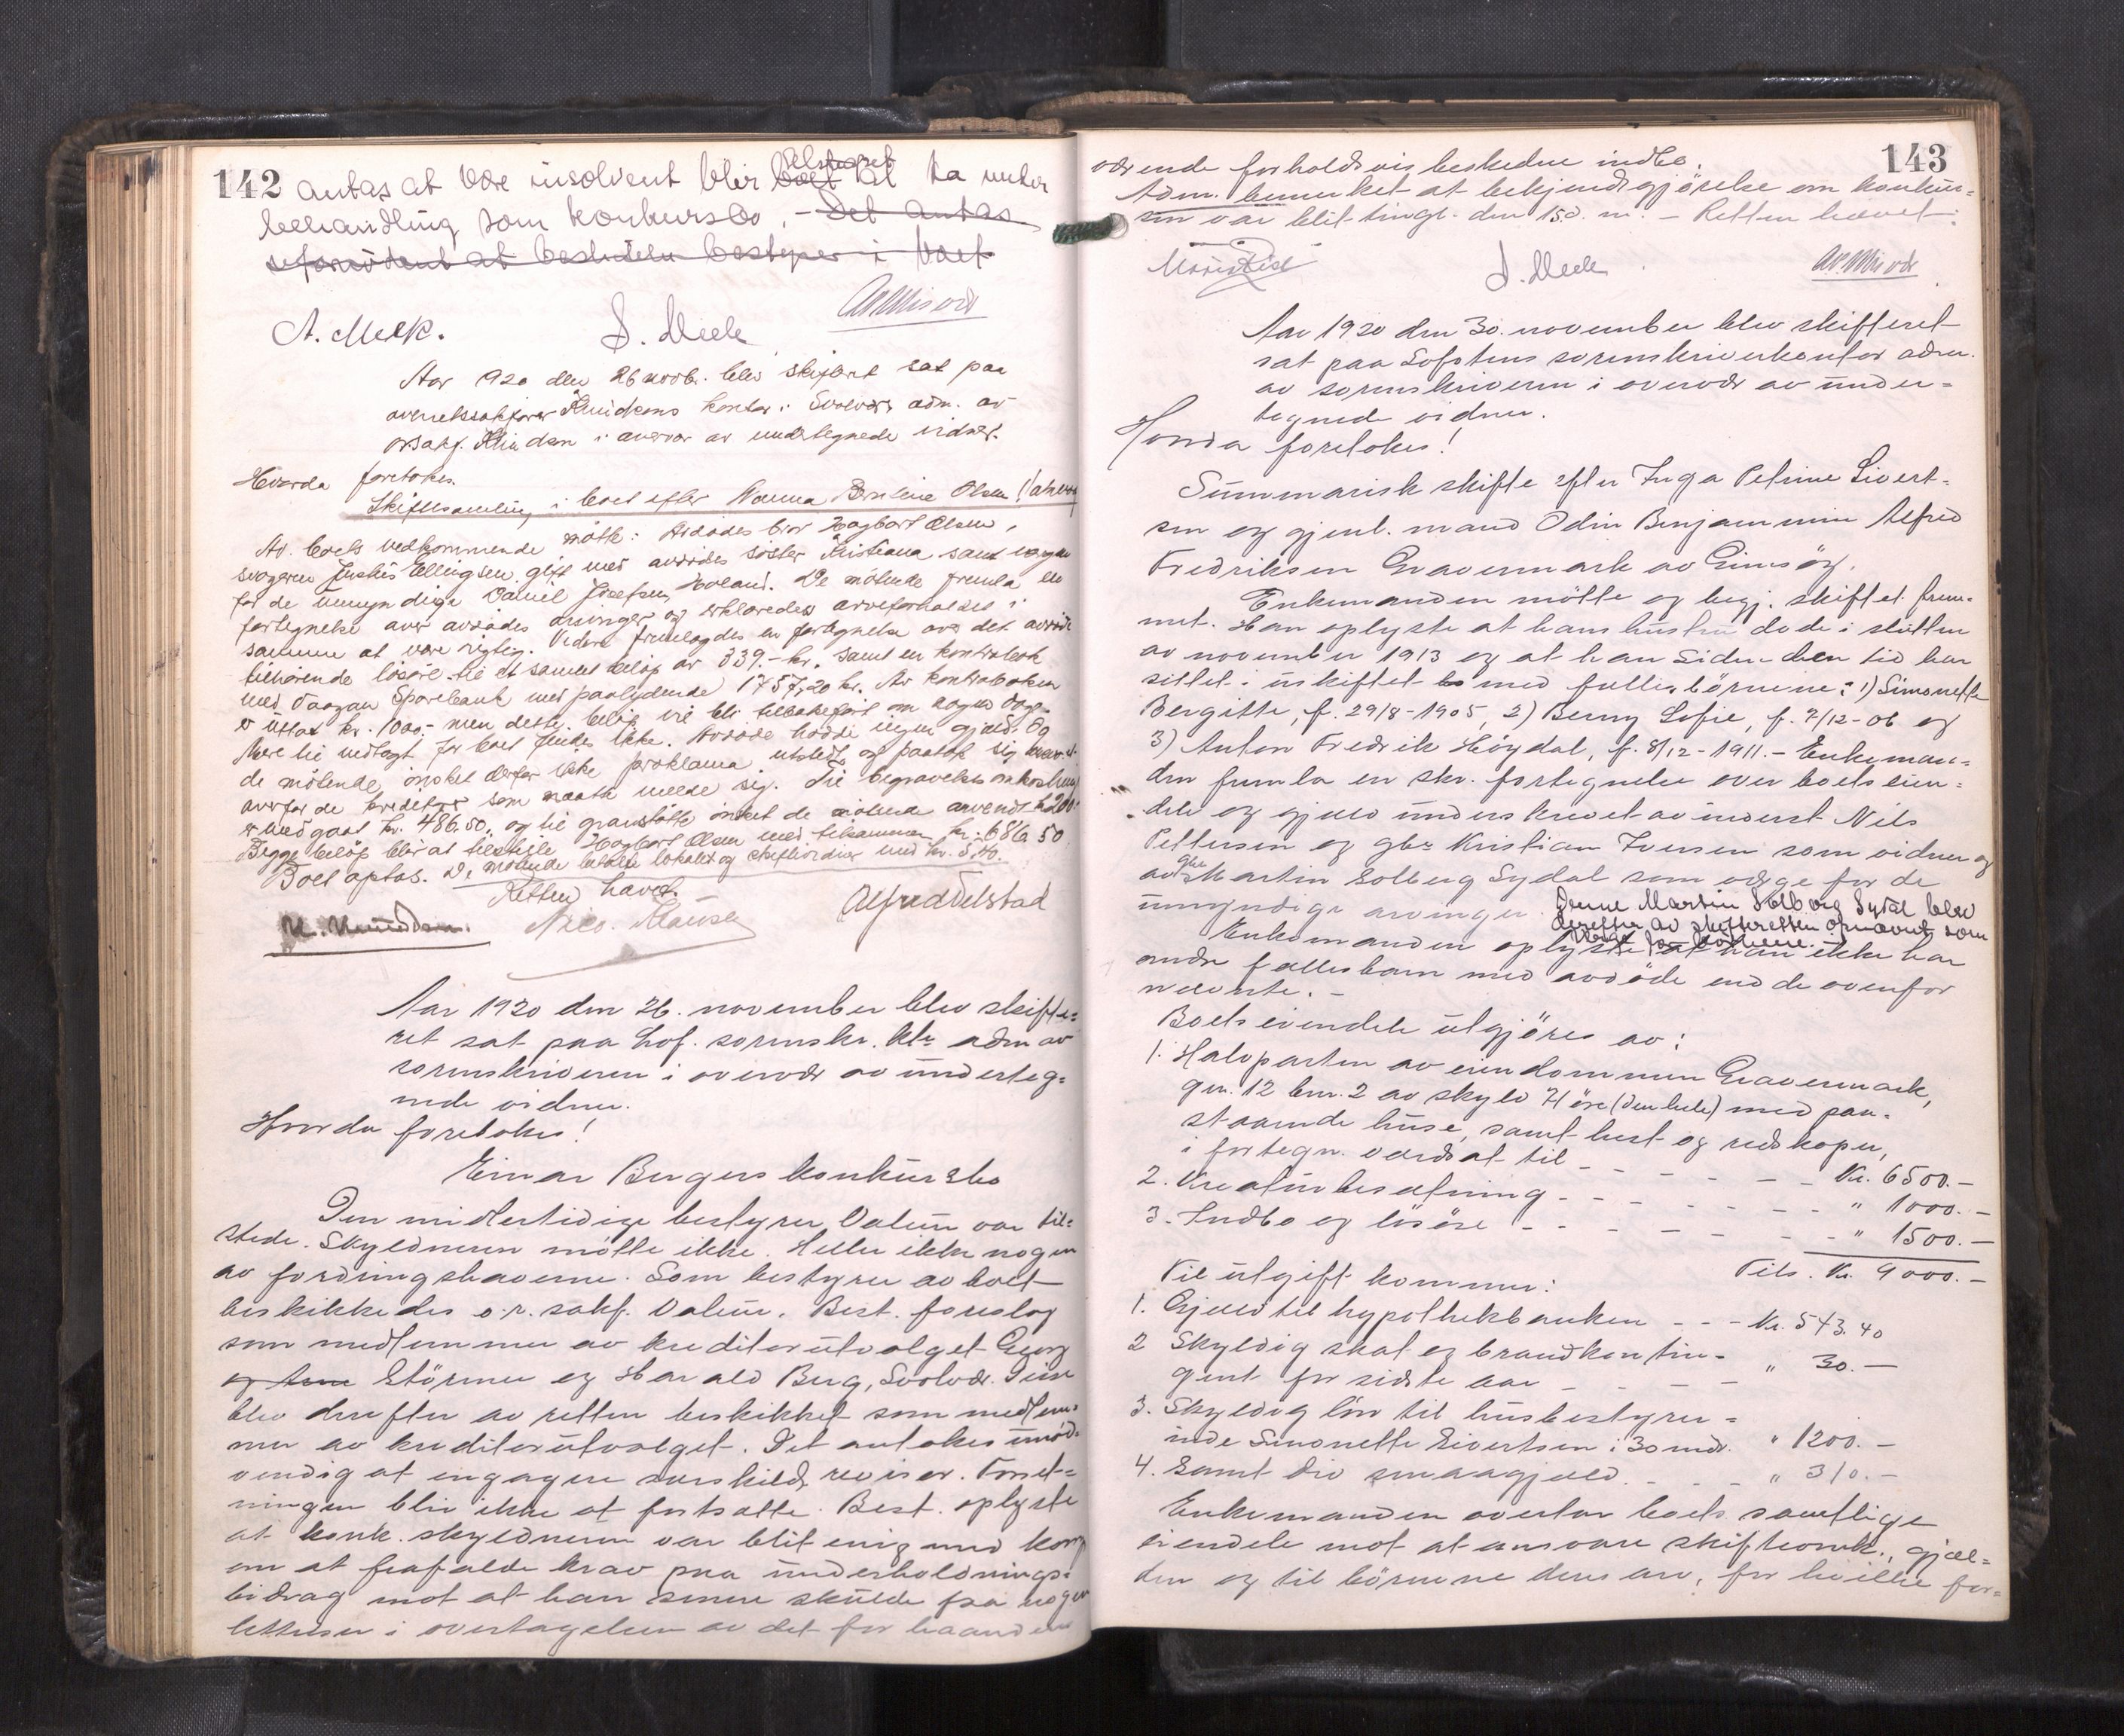 142 antas at være insolvent blir boet at ta under
behandling som konkursbo. - Det antas
at bestyrer i boet
A. Meek. S. Meek
Aar 1920 den 26 novbr. blev skifteret sat paa
overretssakfører Knudsens kontor i Svolvær adm. av
orsakf. Knudsen i overvær av undertegnede vidner.
Hvorda foretokes.
Skiftesamling i boet efter Nanna Olsen
For boets vedkommende møtte: Avdødes bror Hagbart Olsen,
svogeren Justus Ellingsen gift med avdødes søster Kristiana samt
for de umyndige Daniel Josefsen, Holand. De møtende fremla en
fortegnelse over avdødes arvinger og erklæredes arveforholdet i
samme at være rigtig. Videre fremlagdes en fortegnelse over det avdøde
tilhørende løsøre til et samlet beløp av 339.- kr. samt en kontrabok
med Vaagan Sparebank med paalydende 1757,20 kr. Av kontraboken
er uttat kr. 1000.- men dette beløp vil bli tilbakeført om nogen dage.
Mere til indtægt for boet findes ikke. Avdøde hadde ingen gjæld. Og
de møtende ønsket derfor ikke proklama utstedt og paatok sig ansvaret
overfor de kreditorer som maatte melde sig. Til begravelsesomkostninger
er medgaat kr. 486.50, og til gravstøtte ønsket de møtende anvendt kr. 200.-
Begge beløp blir at tilstille Hagbart Olsen med tilsammen kr. 686.50
Boet optas. De møtende betalte lokalet og skiftevidner med kr. 5,40.
Retten hævet.
K. Knudsen. Nico. Clausen Alfred Delstad
Aar 1920 den 26. november blev skifte=
ret sat paa Lof. sorenskr. ktr. adm av
sorenskriveren i overvær av underteg=
nede vidner.
Hvorda foretokes!
Einar Bergers konkursbo
Den midlertidige bestyrer Valen var til=
stede. Skyldneren møtte ikke. Heller ikke nogen
av fordringshaverne. Som bestyrer av boet
beskikkedes o.r. sakf. Valen. Best. foreslog
som medlemmer av kreditorutvalget Georg
og Størmer og Harald Berg, Svolvær. Disse
blev derefter av retten beskikket som medlem=
mer av kreditorutvalget. Det antokes unød=
vendig at engagere særskild revisor. Forret=
ningen blir ikke at fortsætte. Best. oplyste
at konk. skyldneren var blit enig med ham
om at frafalde krav paa underholdnings=
bidrag mot at han senere skulde faa nogen
lettelser i overtagelsen av det for haanden
143
værende forholdsvis beskedne indbo.
Adm. bemerket at bekjendtgjørelse om konkur=
sen var blit tinglt. den 15.d. m. - Retten hævet.
S. Meek
Aar 1920 den 30. november blev skifteret
sat paa Lofotens sorenskriverkontor adm.
av sorenskriveren i overvær av under=
tegnede vidner.
Hvorda foretokes!
Summarisk skifte efter Inga Petrine Sivert=
sen og gjenl. mand Odin Benjammin Alfred
Fredriksen Gravermark av Gimsøy.
Enkemanden møtte og begj. skiftet frem=
met. Han oplyste at hans hustru døde i slutten
av november 1913 og at han siden den tid har
sittet i uskiftet bo med fællesbørnene: 1) Simonette
Bergitte, f. 29/8-1905, 2) Benny Sofie, f. 7/12-06 og
3) Anton Fredrik Høydal, f. 8/12-1911. - Enkeman=
den fremla en skr. fortegnelse over boets eien=
dele og gjæld underskrevet av inderst Nils
Pettersen og gbr Kristian Iversen som vidner og
av gbr Martin Solberg Sydal som værge for de
umyndige arvinger. Denne Martin Solberg Sydal blev
derefter av skifteretten opnævnt som
verge for børnene.
Enkemanden oplyste at han ikke har
andre fællesbarn med avdøde end de ovenfor
nævnte. -
Boets eiendele utgjøres av:
1. Halvparten av eiendommen Gravermark,
gn. 12 bn. 2 av skyld 74 øre (den hele) med paa-
staaende huse, samt hest og redskaper,
i fortegn. værdsat til - - - - - Kr. 6500.-
2. Kreaturbesætning - - - - - - " 1000.-
3. Indbo og løsøre - - - - - - " 1500.-
Tils. Kr. 9000.-
Til utgift kommer:
1. Gjæld til hypothekbanken - - - Kr. 543.40
2 Skyldig skat og brandkontin-
gent for sidste aar - - - - " 30.-
3. Skyldig løn til husbestyrer=
inde Simonette Sivertsen i 30 mdr. " 1200.-
4. Samt div smaagjæld - - - " 310.-
Enkemanden overtar boets samtlige
eiendele mot at ansvare skifteomk., gjæl=
den og til børnene deres arv, for hvilke for=